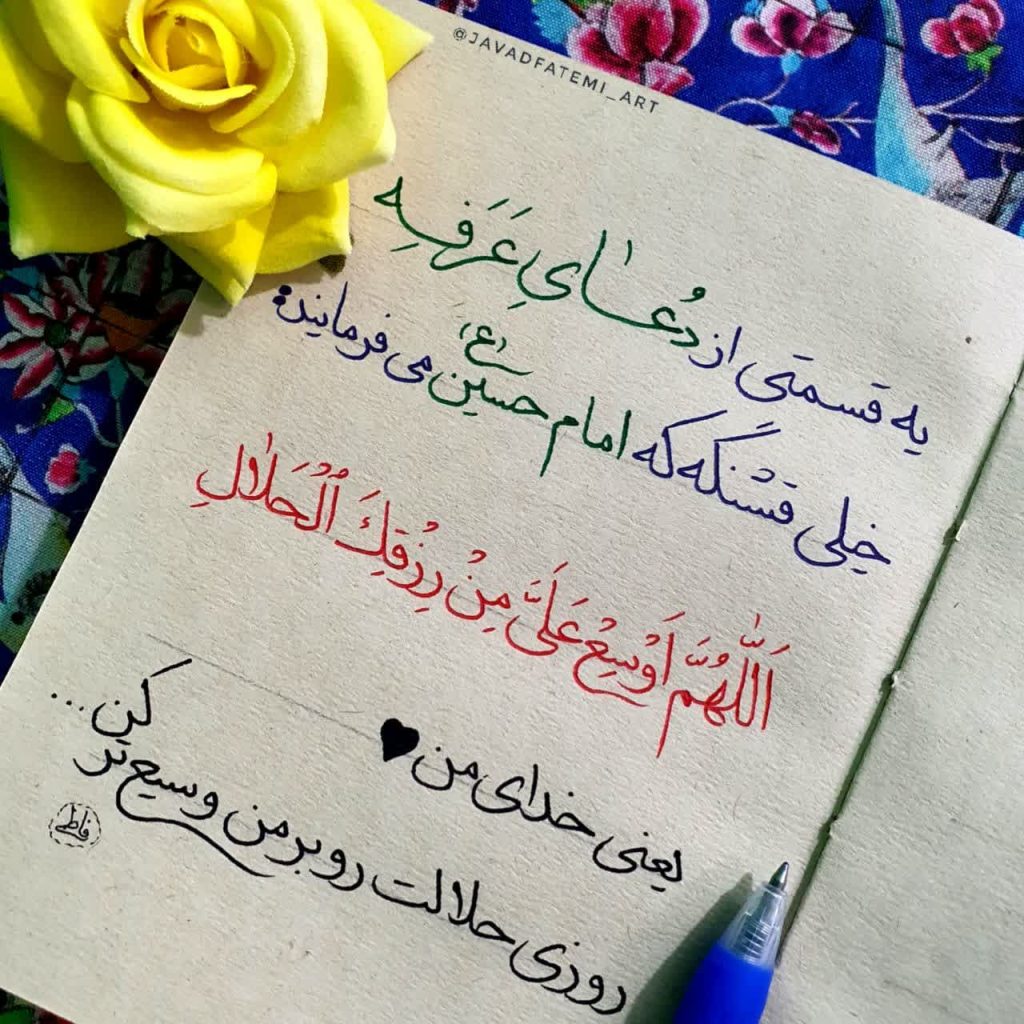 @JAVADFATEMI_ART
یه قسمتی از دُعـــایِ عَرَفـِه
خیلی قشنگه که امام حسین (ع) می فرمایند:
اَللّٰهُمَّ اَوْسِعْ عَلَیَّ مِنْ رِزْقِكَ ٱلْحَلٰالِ
یعنی خدای من♥
روزی حلالت رو بر من وسیع تر کن...
فاطمی